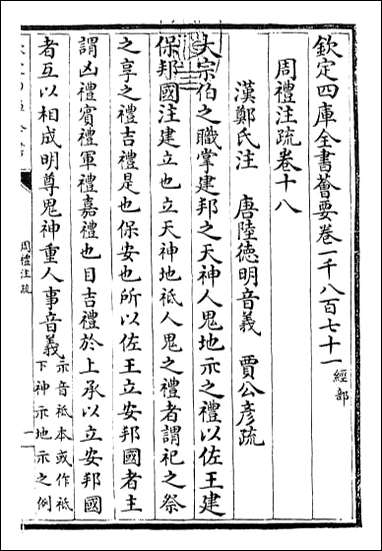 欽定四庫全書薈要卷一千八百七十一經部
周禮注疏卷十八
漢鄭氏注 唐陸德明音義 賈公彥疏
大宗伯之職掌建邦之天神人鬼地示之禮以佐王建
保邦國注建立也立天神地祇人鬼之禮者謂祀之祭
之享之禮吉禮是也保安也所以佐王立安邦國者主
謂凶禮賓禮軍禮嘉禮也目吉禮於上承以立安邦國
者互以相成明尊鬼神重人事音義示音祇本或作祇
下神示地示之例
周禮注疏
一